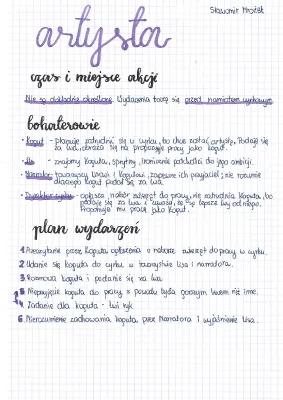 Sławomir Mrożek
artysta
czas i miejsce akcji
Nie są dokładnie określone. Wydarzenia toczą się przed namiotem cyrkowym.
bohaterowie
• Kogut - planuje zatrudnić się w cyrku, bo chce zostać artystą. Podaje się
za lwa, obraża się na propozycję pracy jako kogut.
• Lis - znajomy koguta, sprytny, ironicznie podchodzi do jego ambicji.
• Narrator - towarzyszy lisowi i kogutowi, zapewne ich przyjaciel, nie rozumie
dlaczego kogut podał się za lwa.
• Dyrektor cyrku - ogłasza nabór zwierząt do pracy, nie zatrudnia koguta, bo
podaje się za lwa i uważa, że są lepsze lwy od niego.
Proponuje mu pracę jako kogut.
plan wydarzeń
1. Przeczytanie przez koguta ogłoszenia o naborze zwierząt do pracy w cyrku.
2. Udanie się koguta do cyrku w towarzystwie lisa i narratora.
3. Rozmowa koguta i podanie się za lwa.
5. Nieprzyjęcie koguta do pracy z powodu bycia gorszym lwem niż inne.
4. Zadanie dla koguta - ryk
6. Niezrozumienie zachowania koguta przez Narratora i wyjaśnienie lisa.